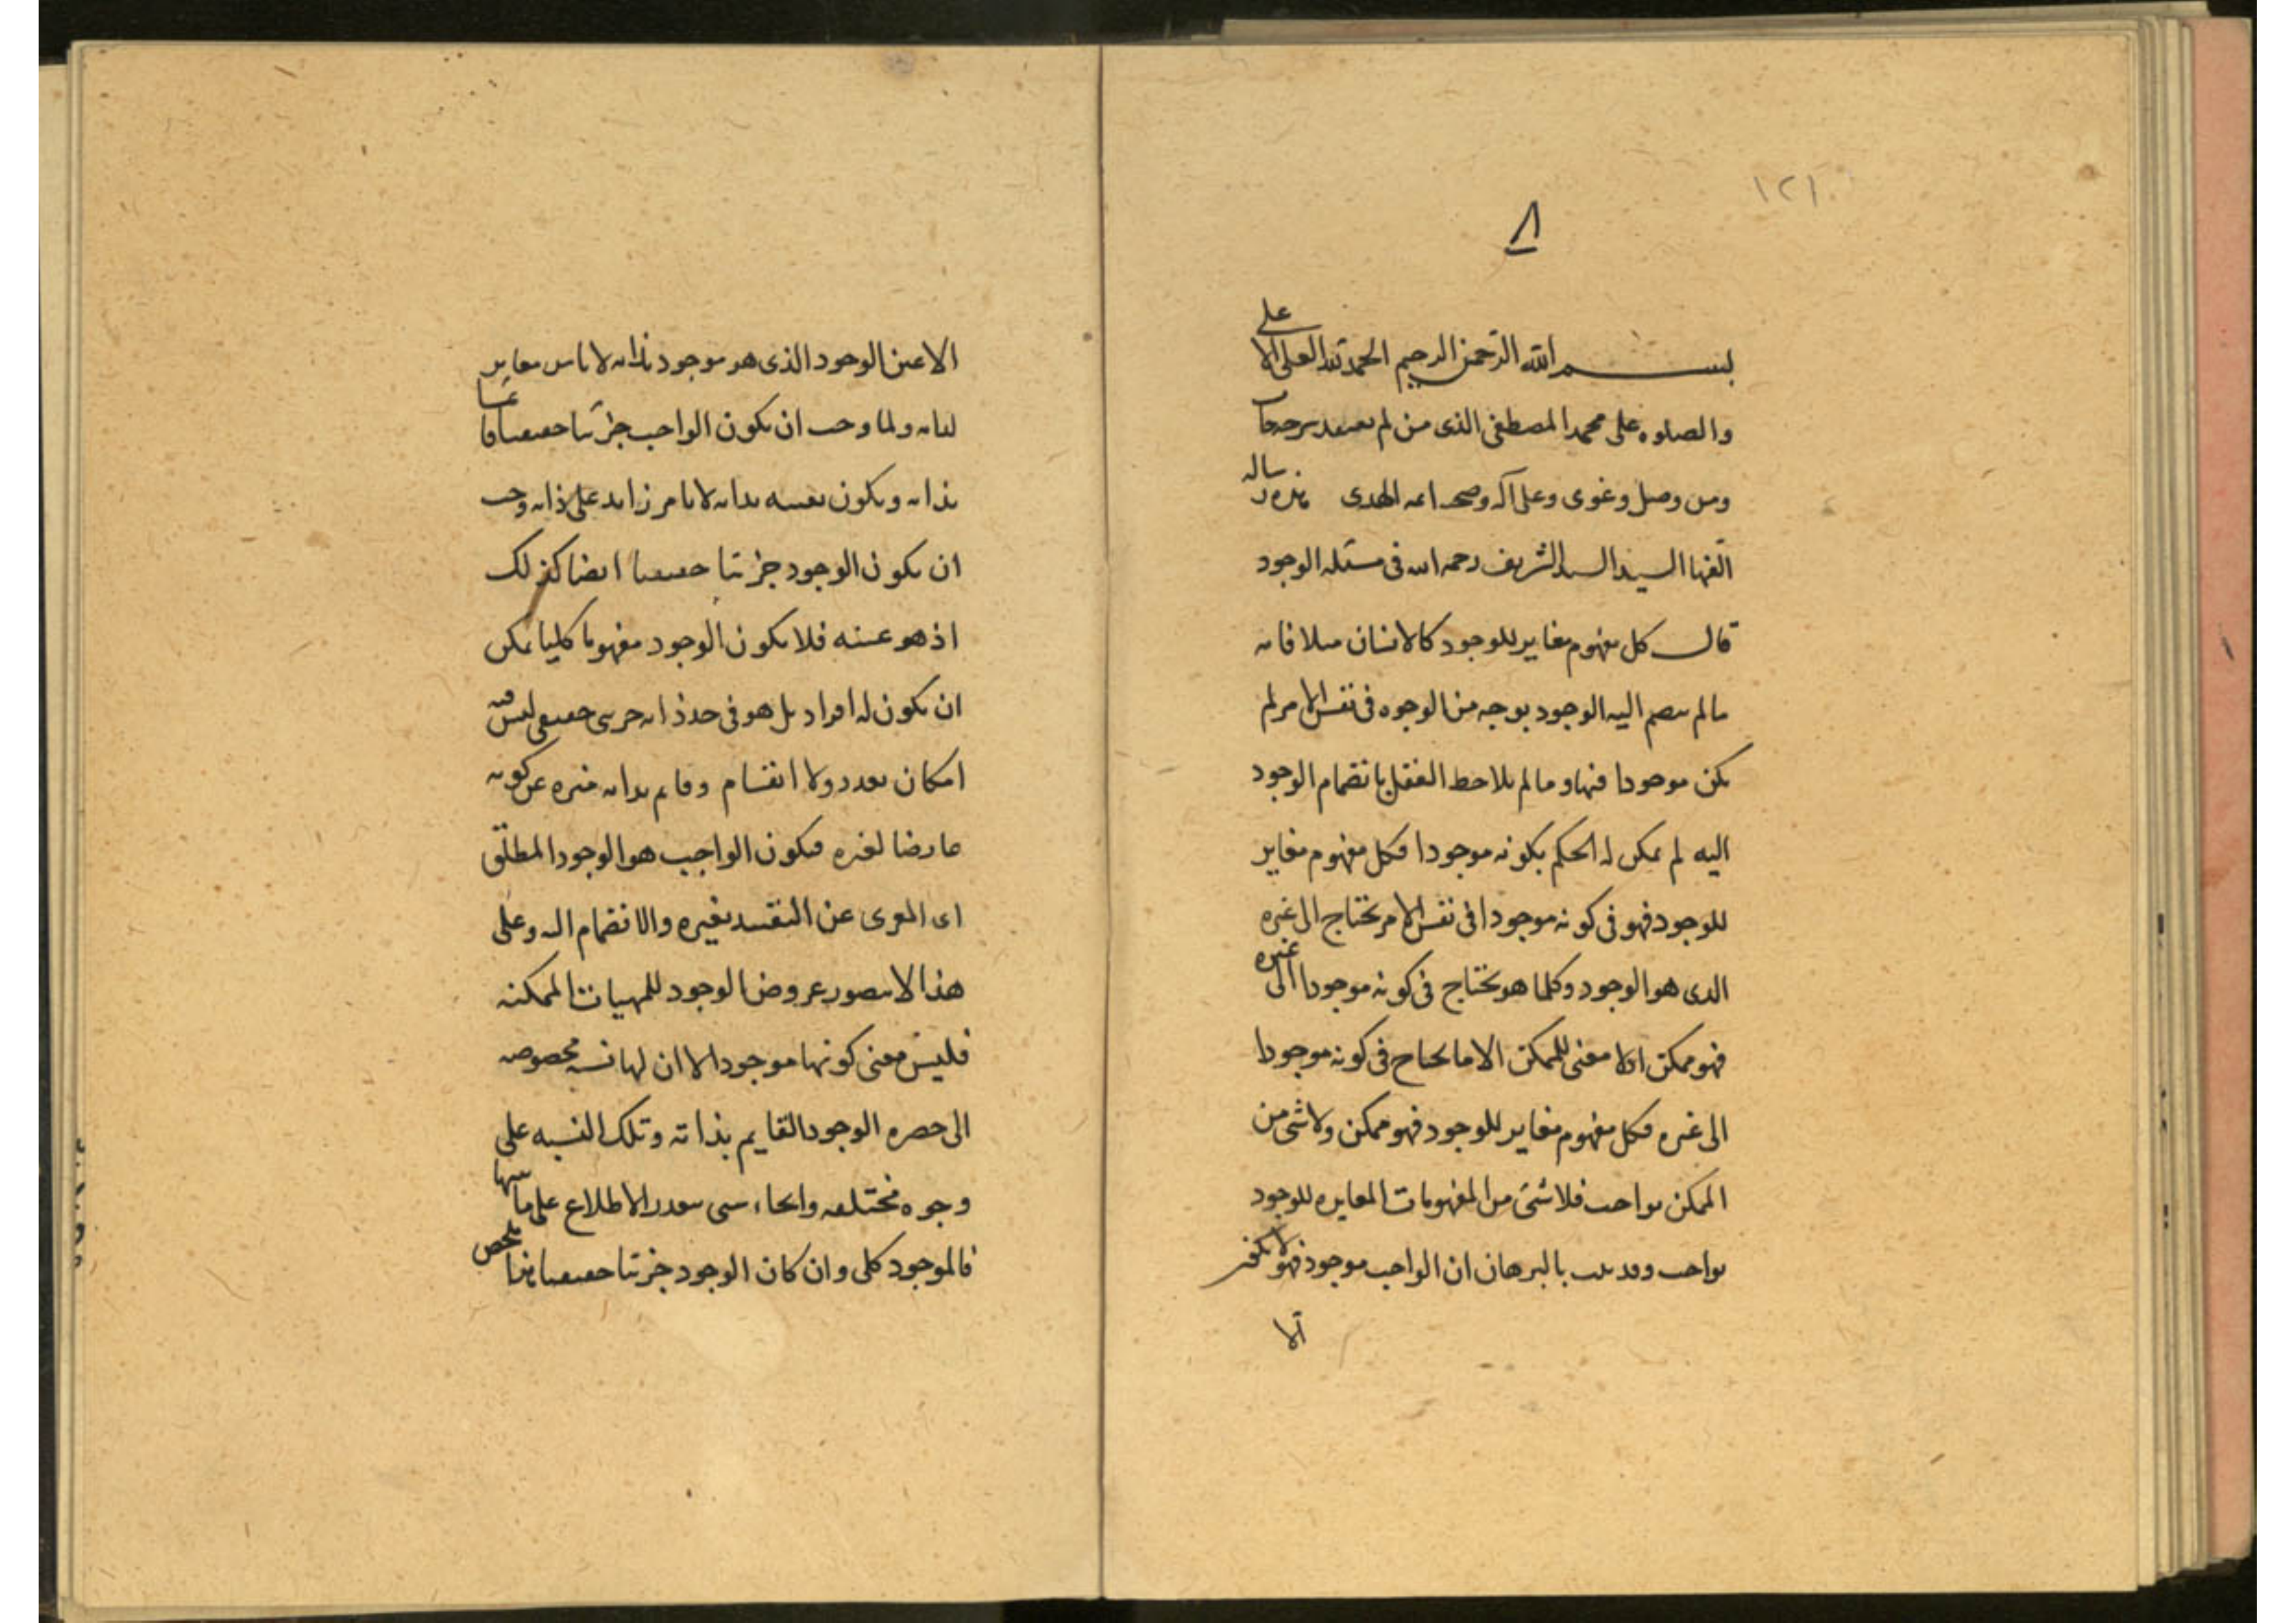 ١٢١
٨
بسم الله الرحمن الرحيم الحمد لله العلى الاعلى
والصلوه على محمد المصطفى الذى من لم
ومن وصل وغوى وعلى آله وصحبه ائمه الهدى هذه رساله
الفها السيد السند الشريف رحمه الله فى مسئله الوجود
قال كل مفهوم مغاير للوجود كالانسان مثلا فانه
مالم ينضم اليه الوجود بوجه من الوجوه فى نفس الامر لم
يكن موجودا فيها ومالم يلاحظ العقل بانضمام الوجود
اليه لم يمكن له الحكم بكونه موجودا فكل مفهوم مغاير
للوجود فهو فى كونه موجودا فى نفس الامر يحتاج الى غيره
الذى هو الوجود وكلما هو يحتاج فى كونه موجودا الى غيره
فهو ممكن اذ لا معنى للممكن الا ما يحتاج فى كونه موجودا
الى غيره فكل مفهوم مغاير للوجود فهو ممكن ولا شئ من
الممكن بواجب فلا شئ من المفهومات المغايره للوجود
بواجب وقد ثبت بالبرهان ان الواجب موجود فهو لا يكون
الا
الا عين الوجود الذى هو موجود بذاته لا بامر مغاير
لذاته ولما وجب ان يكون الواجب جزئيا حقيقيا قايما
بذاته ويكون تعينه بذاته لا بامر زايد على ذاته وجب
ان يكون الوجود جزئيا حقيقيا ايضا كذلك
اذ هو عينه فلا يكون الوجود مفهوما كليا يمكن
ان يكون له افراد بل هو فى حد ذاته جزئى حقيقى ليس فيه
امكان تعدد ولا انقسام وقايم بذاته منزه عن كونه
عارضا لغيره فيكون الواجب هو الوجود المطلق
اى المعرى عن التقييد بغيره والانضمام اليه وعلى
هذا لا يتصور عروض الوجود للمهيات الممكنه
فليس معنى كونها موجودا الا ان لها نسبه مخصوصه
الى حضره الوجود القايم بذاته وتلك النسبه على
وجوه مختلفه وانحاء شتى يتعذر الاطلاع على ماهيتها
فالموجود كلى وان كان الوجود جزئيا حقيقيا هذا ملخص